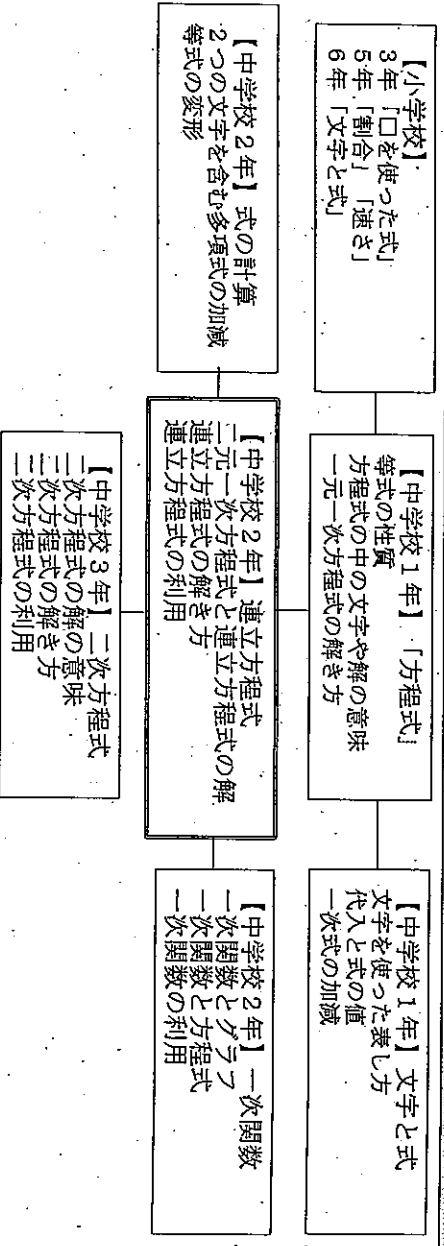 【小学校】
3年「□を使った式」
5年「割合」「速さ」
6年「文字と式」
【中学校1年】「方程式」
等式の性質
方程式の中の文字や解の意味
一元一次方程式の解き方
【中学校1年】文字と式
文字を使った表し方
代入と式の値
一次式の加減
【中学校2年】式の計算
2つの文字を含む多項式の加減
等式の変形
【中学校2年】連立方程式
二元一次方程式と連立方程式の解
連立方程式の解き方
連立方程式の利用
【中学校2年】一次関数
一次関数とグラフ
一次関数と方程式
一次関数の利用
【中学校3年】二次方程式
二次方程式の解の意味
二次方程式の解き方
二次方程式の利用